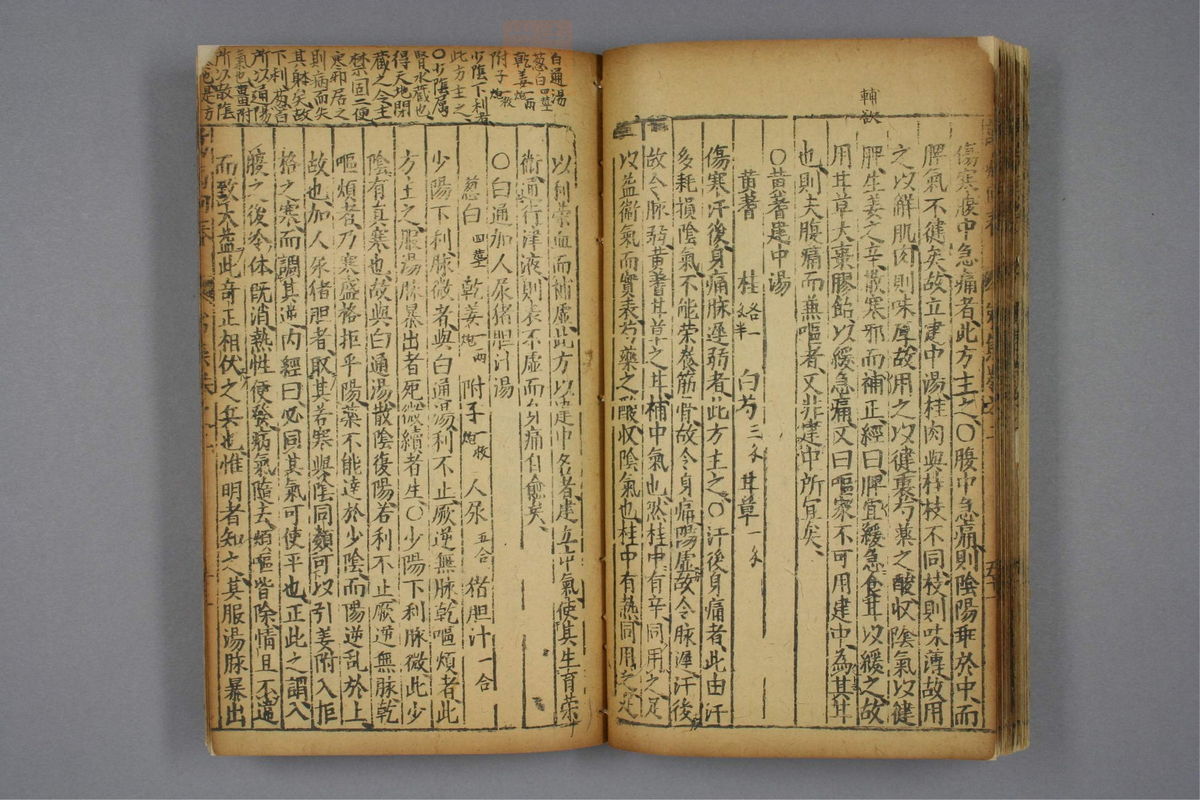 輔欲
傷寒腹中急痛者此方主之〇腹中急痛則陰陽乖於中而
脾氣不健矣故立建中湯桂肉與桂枝不同枝則味薄故用
之以解肌肉則味厚故用之以健裏芍藥之酸收陰氣以健
脾生姜之辛散寒邪而補正經曰脾宜緩急食甘以緩之故
用甘草大棗膠飴以緩急痛又曰嘔家不可用建中為其甘
也則夫腹痛而兼嘔者又非建中所宜矣
〇黃蓍建中湯
黃蓍 桂 各一 又半 白芍 三 甘草 一
傷寒汗後身痛脉遲弱者此方主之〇汗後身痛者此由汗
多耗損陰氣不能荣養筋骨故令身痛陽虛故令脉遲汗後
故令脉弱黃蓍甘草之甘補中氣也然桂中有辛同用之足
以益衞氣而實表芍藥之酸収陰氣也桂中有熱同用之足
以利荣血而補虛此方以建中名者建立中氣使其生育荣
衞通行津液則表不虛而身痛自愈矣
〇白通加人尿猪胆汁湯
葱白 四莖 乾姜 炮一兩 附子 一枚炮 人尿 五合 猪胆汁 一合
少陽下利脉微者與白通湯利不止厥逆無脉乾嘔煩者此
方主之服湯脉暴出者死微續者生〇少陽下利脉微此少
陰有真寒也故與白通湯散陰復陽若利不止厥逆無脉乾
嘔煩者乃寒盛格拒乎陽藥不能達於少陰而陽逆亂於上
故也加人尿猪胆者取其苦寒與陰同類可以引姜附入拒
格之寒而調其逆內經曰必同其氣可使平也正此之謂入
腹之後冬体既消熱性便發病氣隨去煩嘔皆除情且不違
而致大益此奇正相伏之兵也惟明者知之其服湯脉暴出
白通湯
葱白 四莖
乾姜 炮一兩
附子 炮一枚
少陰下利者
此方主之
〇少陰属
腎水藏也
得天地閉
藏之令主
禁固二便
寒邪居之
則病而失
其軄矣故
下利葱白
所以通陽
氣也薑附
所以散陰